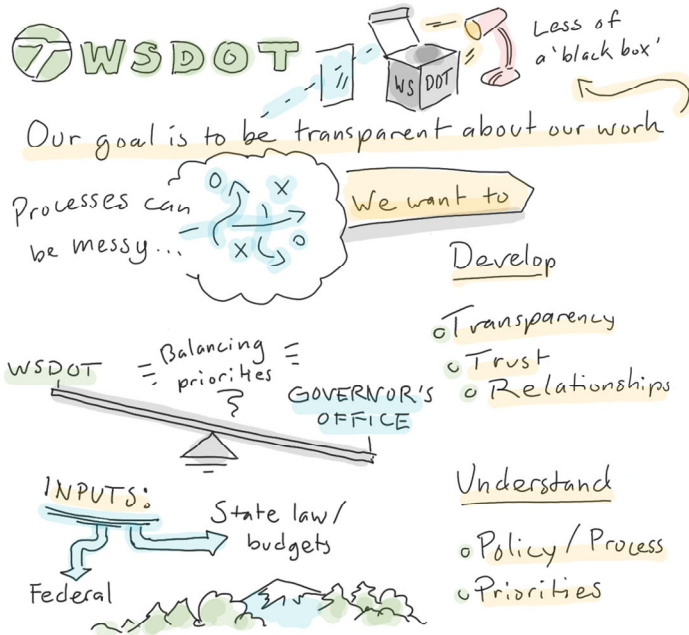 WSDOT
WS DOT
Less of
a 'black box'
Our goal is to be transparent about our work
Processes can
be messy...
O X
X O
We want to
Develop
Transparency
Trust
Relationships
WSDOT
Balancing
priorities
?
GOVERNOR'S
OFFICE
INPUTS:
State law/
budgets
Federal
Understand
Policy/Process
Priorities